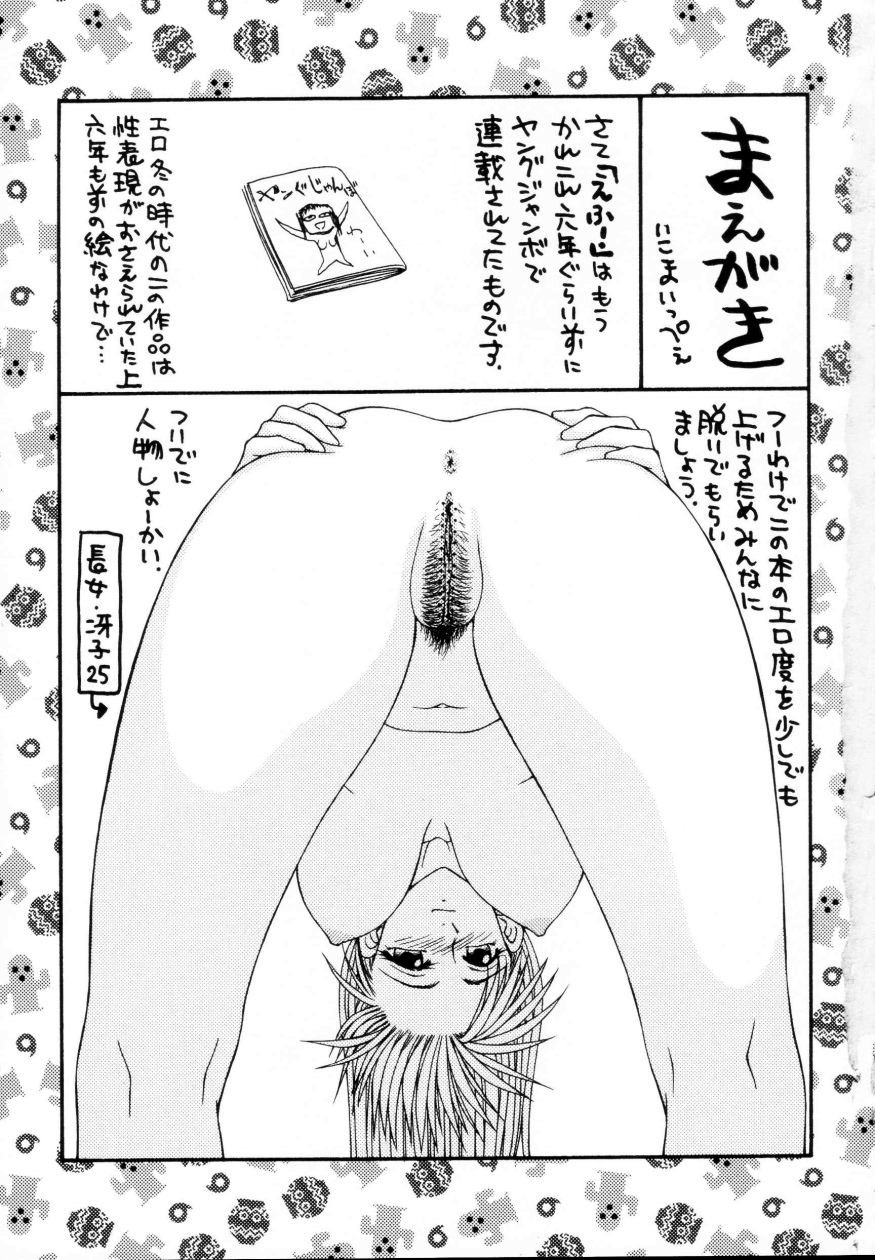 まえがき
いこまいっぺぇ
さて「えふー!」はもう
かれこれ六年ぐらい前に
ヤングジャンボで
連載されてたものです.
やんぐじゃんぼ
わー
エロ冬の時代のこの作品は
性表現がおさえられていた上
六年も前の絵なわけで…
つーわけでこの本のエロ度を少しでも
上げるためみんなに
脱いでもらい
ましょう.
ついでに
人物しょーかい.
長女・冴子25